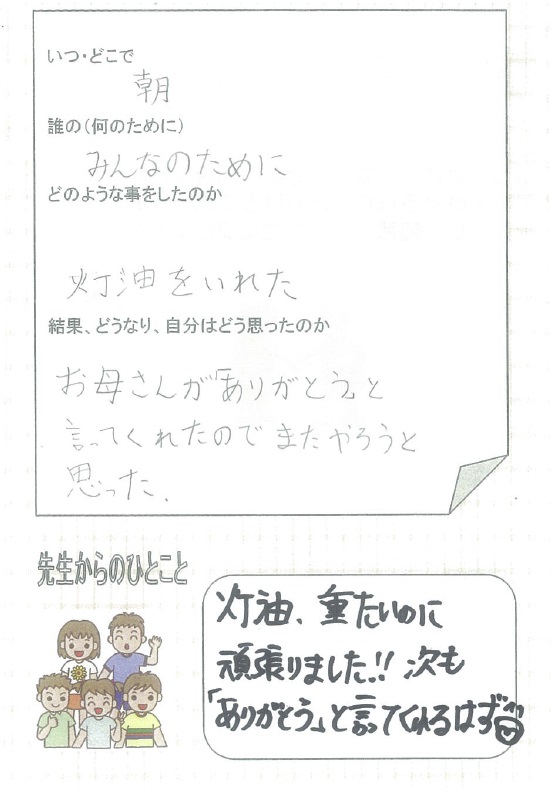 いつ・どこで
朝
誰の(何のために)
みんなのために
どのような事をしたのか
灯油をいれた
結果、どうなり、自分はどう思ったのか
お母さんが「ありがとう」と
言ってくれたのでまたやろうと
思った.
先生からのひとこと
灯油、重たいのに
頑張りました!! 次も
「ありがとう」と言ってくれるはず